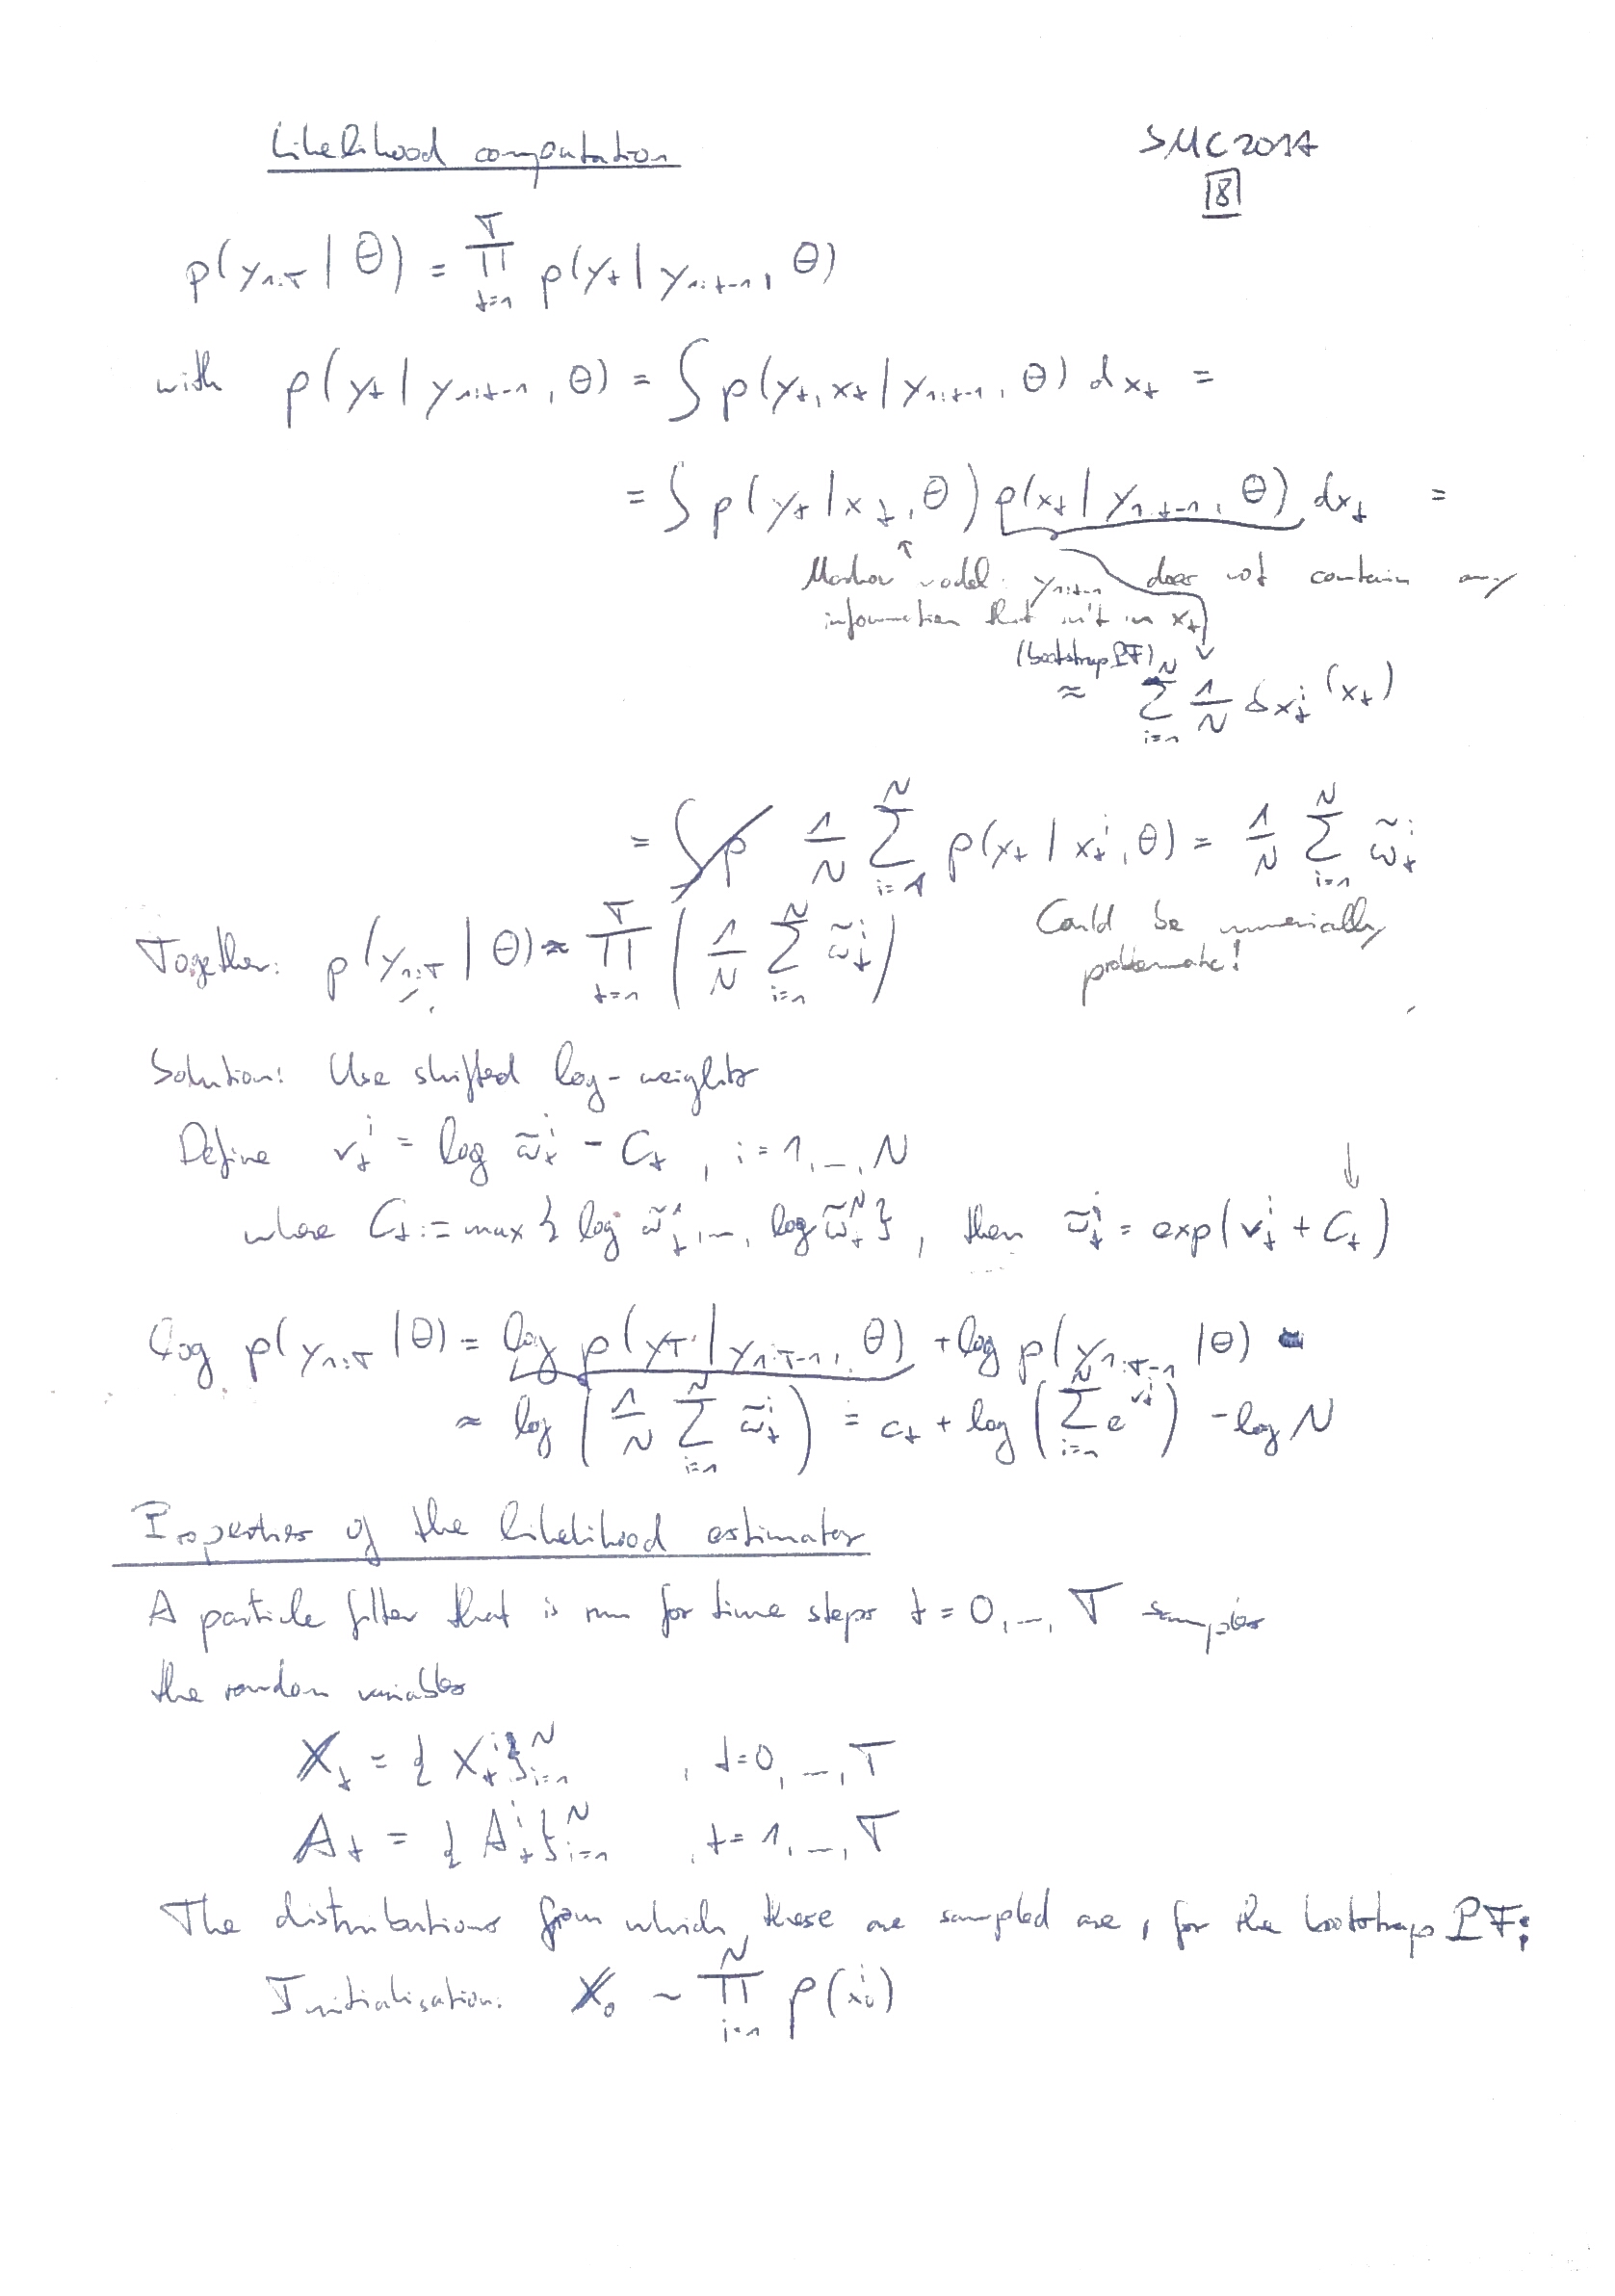 Likelihood computation
SMC2017
18
p(y_{1:T} | θ) = ∏_{t=1}^{T} p(y_t | y_{1:t-1}, θ)
with p(y_t | y_{1:t-1}, θ) = ∫ p(y_t, x_t | y_{1:t-1}, θ) dx_t =
= ∫ p(y_t | x_t, θ) p(x_t | y_{1:t-1}, θ) dx_t =
Markov model: y_{1:t-1} does not contain any
information that isn't in x_t
(bootstrap PF)
≈ ∑_{i=1}^{N} 1/N δ_{x_t^i}(x_t)
= 1/N ∑_{i=1}^{N} p(x_t | x_t^i, θ) = 1/N ∑_{i=1}^{N} ω̃_t^i
Could be numerically
problematic!
Together: p(y_{1:T} | θ) ≈ ∏_{t=1}^{T} (1/N ∑_{i=1}^{N} ω̃_t^i)
Solution: Use shifted log-weights
Define v_t^i = log ω̃_t^i - C_t, i = 1, ..., N
where C_t := max { log ω̃_t^1, ..., log ω̃_t^N }, then ω̃_t^i = exp(v_t^i + C_t)
log p(y_{1:T} | θ) = log p(y_T | y_{1:T-1}, θ) + log p(y_{1:T-1} | θ)
≈ log (1/N ∑_{i=1}^{N} ω̃_t^i) = c_t + log (∑_{i=1}^{N} e^{v_t^i}) - log N
Properties of the likelihood estimator
A particle filter that is run for time steps t = 0, ..., T samples
the random variables
X_t = { X_t^i }_{i=1}^{N} , t = 0, ..., T
A_t = { A_t^i }_{i=1}^{N} , t = 1, ..., T
The distributions from which these are sampled are, for the bootstrap PF:
Initialisation: X_0 ~ ∏_{i=1}^{N} p(x_0^i)